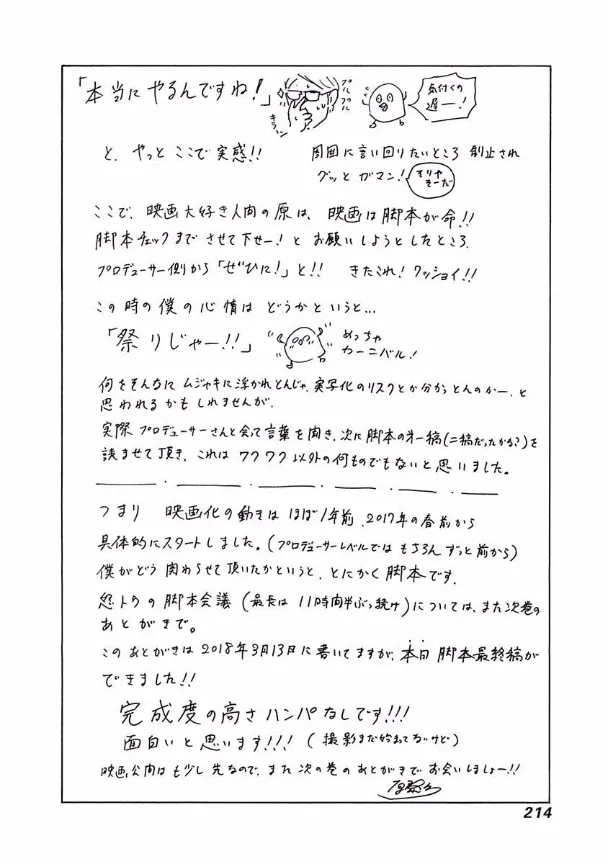 「本当にやるんですね！」
キラーン
プルプル
プルプル
気付くの
遅ー！
と、やっとここで実感!!
周囲に言い回りたいところ 制止され
グッと ガマン！
そりゃ
そーだ
ここで、映画大好き人間の原は、映画は脚本が命!!
脚本チェックまで させて下せー！と お願いしようとしたところ、
プロデューサー側から「ぜひに！」と!! きたこれ！ワッショイ!!
この時の僕の心情は どうかというと…
「祭りじゃー!!」
めっちゃ
カーニバル！
何をそんなに ムジャキに浮かれとんじゃ、実写化のリスクとか分かっとんのかー、と
思われるかもしれませんが、
実際プロデューサーさんと会って言葉を聞き、次に脚本の第一稿(二稿だったかな？)を
読ませて頂き、これは ワクワク以外の何ものでもないと思いました。
つまり 映画化の動きは ほぼ1年前、2017年の春前から
具体的にスタートしました。(プロデューサーレベルでは もちろん ずっと前から)
僕がどう関わらせて頂いたかというと、とにかく脚本です。
怒トウの脚本会議(最長は 11時間半ぶっ続け)については、また次巻の
あとがきで。
このあとがきは2018年3月13日に書いてますが、本日 脚本最終稿が
できました!!
完成度の高さハンパなしです!!!
面白いと思います!!!(撮影まだ始まってないけど)
映画公開はもう少し先なので、また次の巻のあとがきでお会いしましょー!!
原泰久
214